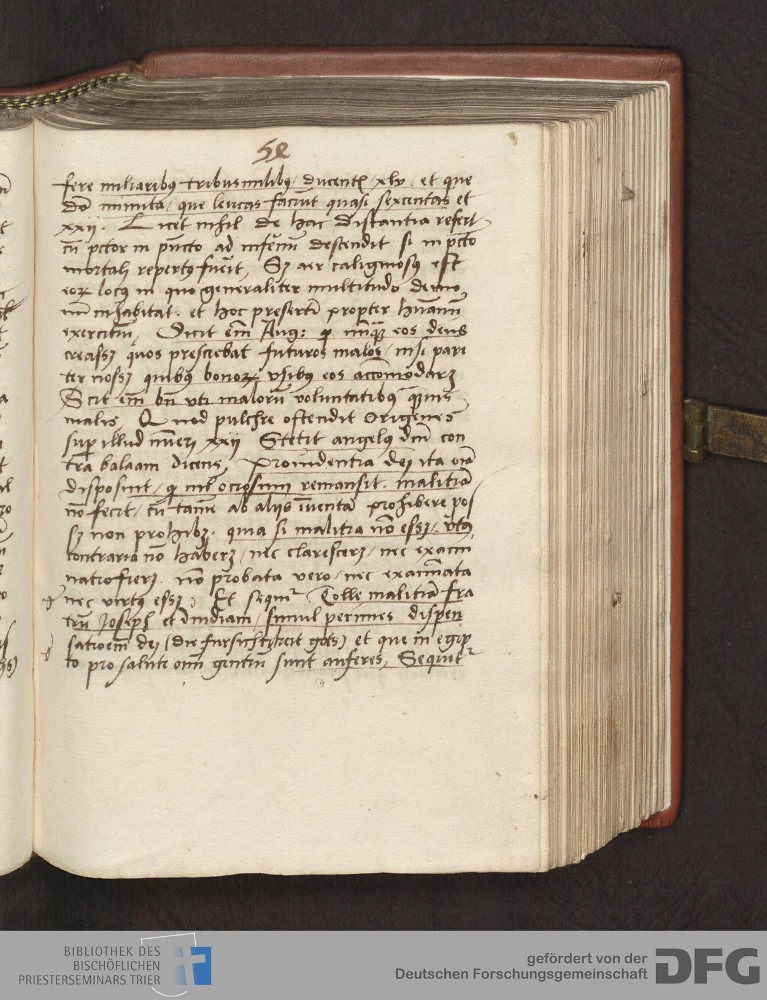 58
fere miliaribꝰ tribusmilibꝰ / ducentꝭ / xlv. et que
dō minuta / que leucas faciūt quasi sexcentas et
xxij. Licet nihil de hac distantia refert
cū pctor in pūcto ad infēnū descendit si in pctō
mortali repertꝰ fuēit, Sꝫ aer caliginosꝰ est
eoꝝ locꝰ in quo generaliter multitudo demo
nū inhabitat. et hoc presertī propter hūanū
exercitiū, Dicit eīm Aug: ꝙ nūꝗ̄ eos deus
creassꝫ quos presciebat futuros malos / nisi pari
ter nossꝫ quibꝰ bonoꝝ vsibꝰ eos accōmodarꝫ
Scit eīm bn̄ vti malorū voluntatibꝰ ꝗ̄uis
malis, Quod pulchre ostendit Origenes
sup illud nūeri xxij Stetit angelꝰ dn̄i con
tra balaam dicens, Prouidentia dei ita oīa
disposuit / ꝙ nil ociosum remansit. malitiā
nō fecit / cū tamē ab alijs īuentā prohibere pos
sꝫ non prohibꝫ. quia si malitia nō essꝫ. vtꝰ
contraria nō haberꝫ / nec clarescerꝫ / nec exami
natio fierꝫ. nō probata vero / nec examīata
nec virtꝰ essꝫ, Et sequitʳ Tolle malitiā fra
trū Joseph et Inuidiam / simul perimes dispen
satioēm dei (die fursichtikeit gots) et que in egip
to pro salute oīm gentiū sunt auferes, Sequitʳ
BIBLIOTHEK DES
BISCHÖFLICHEN
PRIESTERSEMINARS TRIER
gefördert von der
Deutschen Forschungsgemeinschaft
DFG